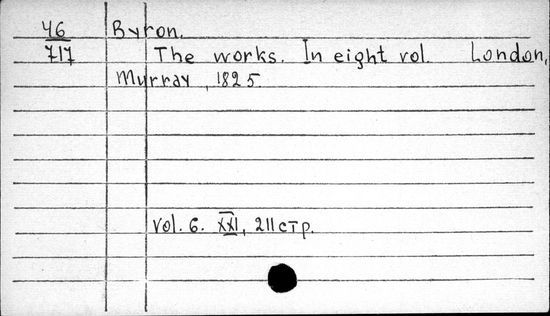 46 Byron.
717 The works. In eight vol. London,
Murray, 1825.
vol. 6. XXI, 211 стр.